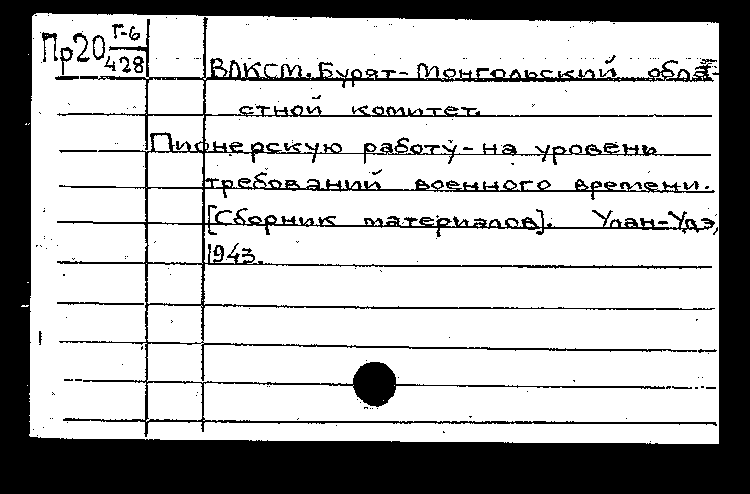 Пр20 Г-6
428
ВЛКСМ. Бурят-Монгольский обла-
стной комитет.
Пионерскую работу - на уровени
требований военного времени.
[Сборник материалов]. Улан-Удэ,
1943.